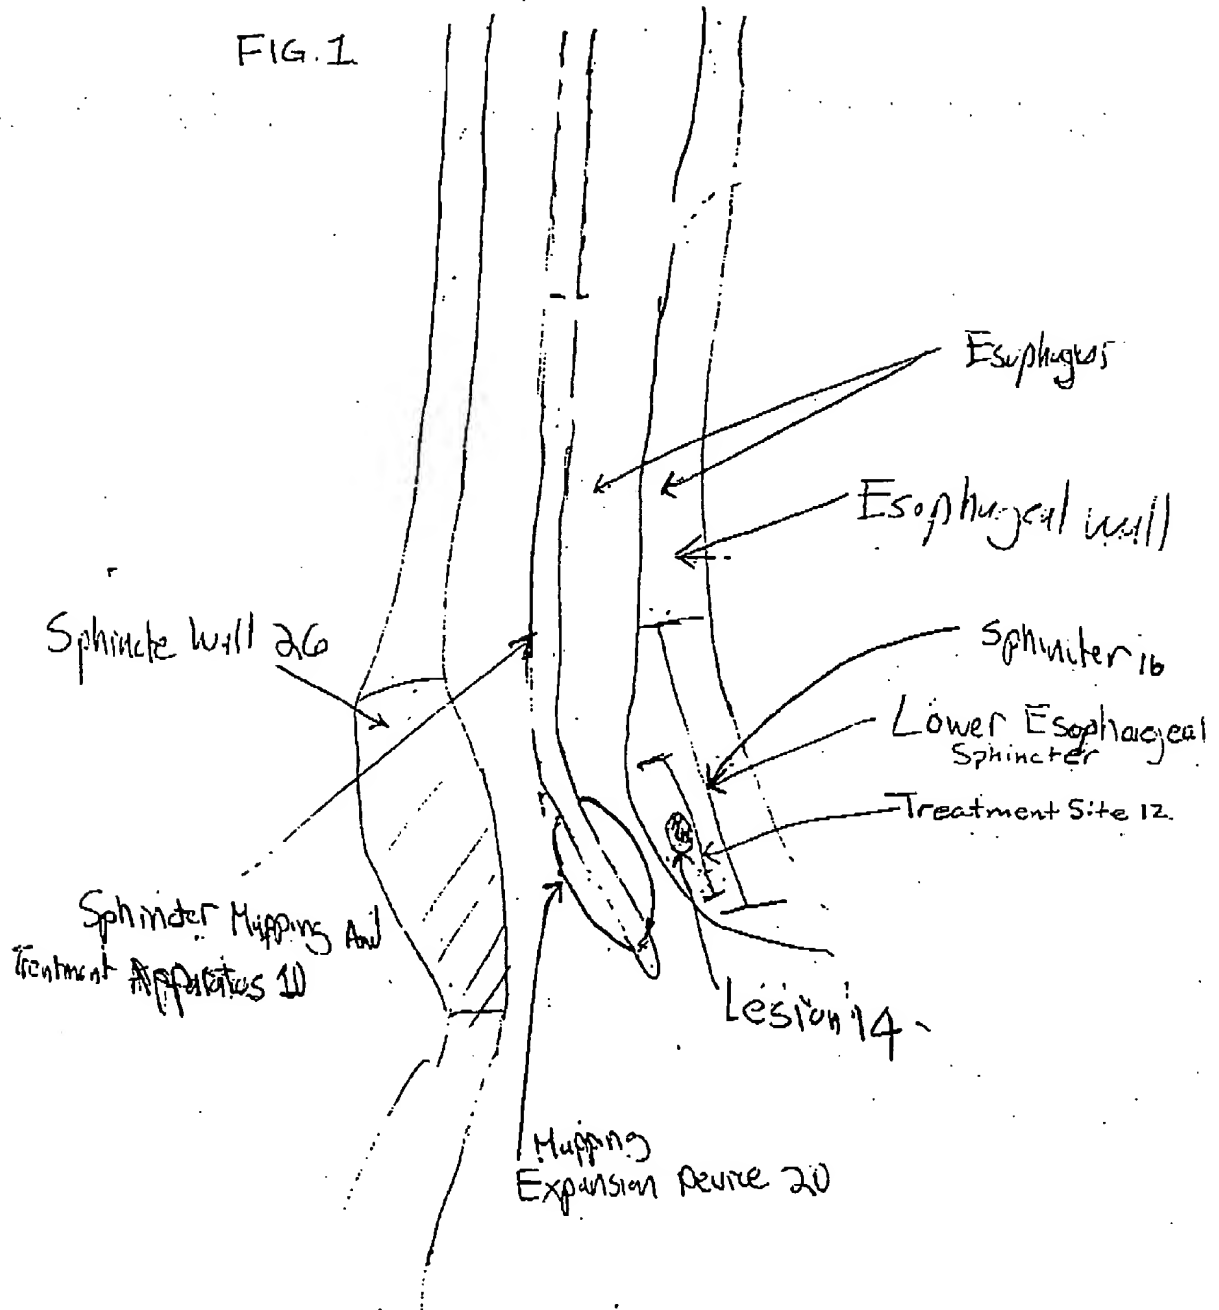 FIG. 1
Esophagus
Esophageal wall
Sphincte Wall 26
Sphiniter 16
Lower Esophageal
Sphincter
Treatment Site 12
Sphincter Mapping And
Treatment Apparatus 10
Lesion 14
Mapping
Expansion Device 20